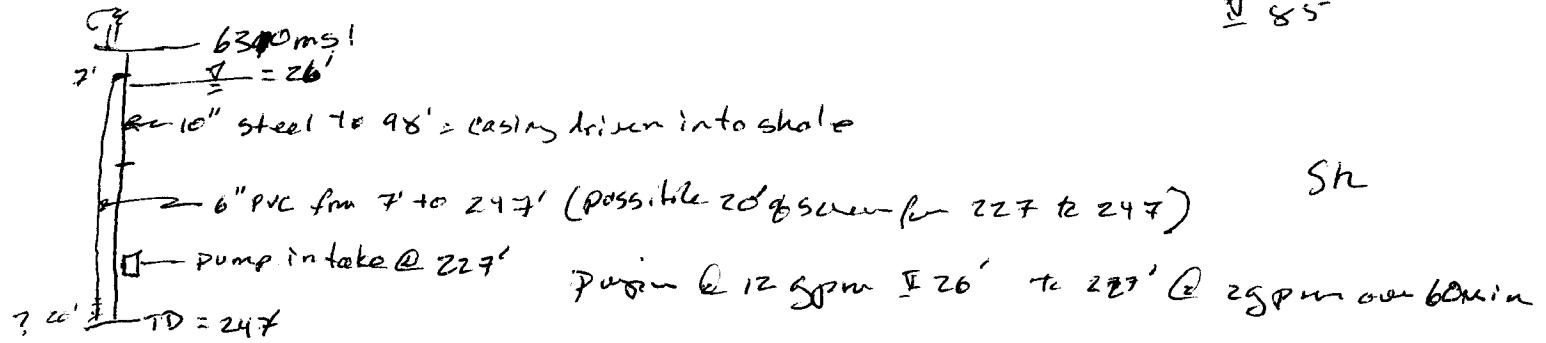 85
6300 msl
7'
= 26'
10" steel to 98' = casing driven into shale
6" PVC from 7' to 247' (possible 20' of screen from 227 to 247)
Sh
pump intake @ 227'
@ 12 gpm 26' to 227' @ 2gpm over 60min
? 20'
TD = 247